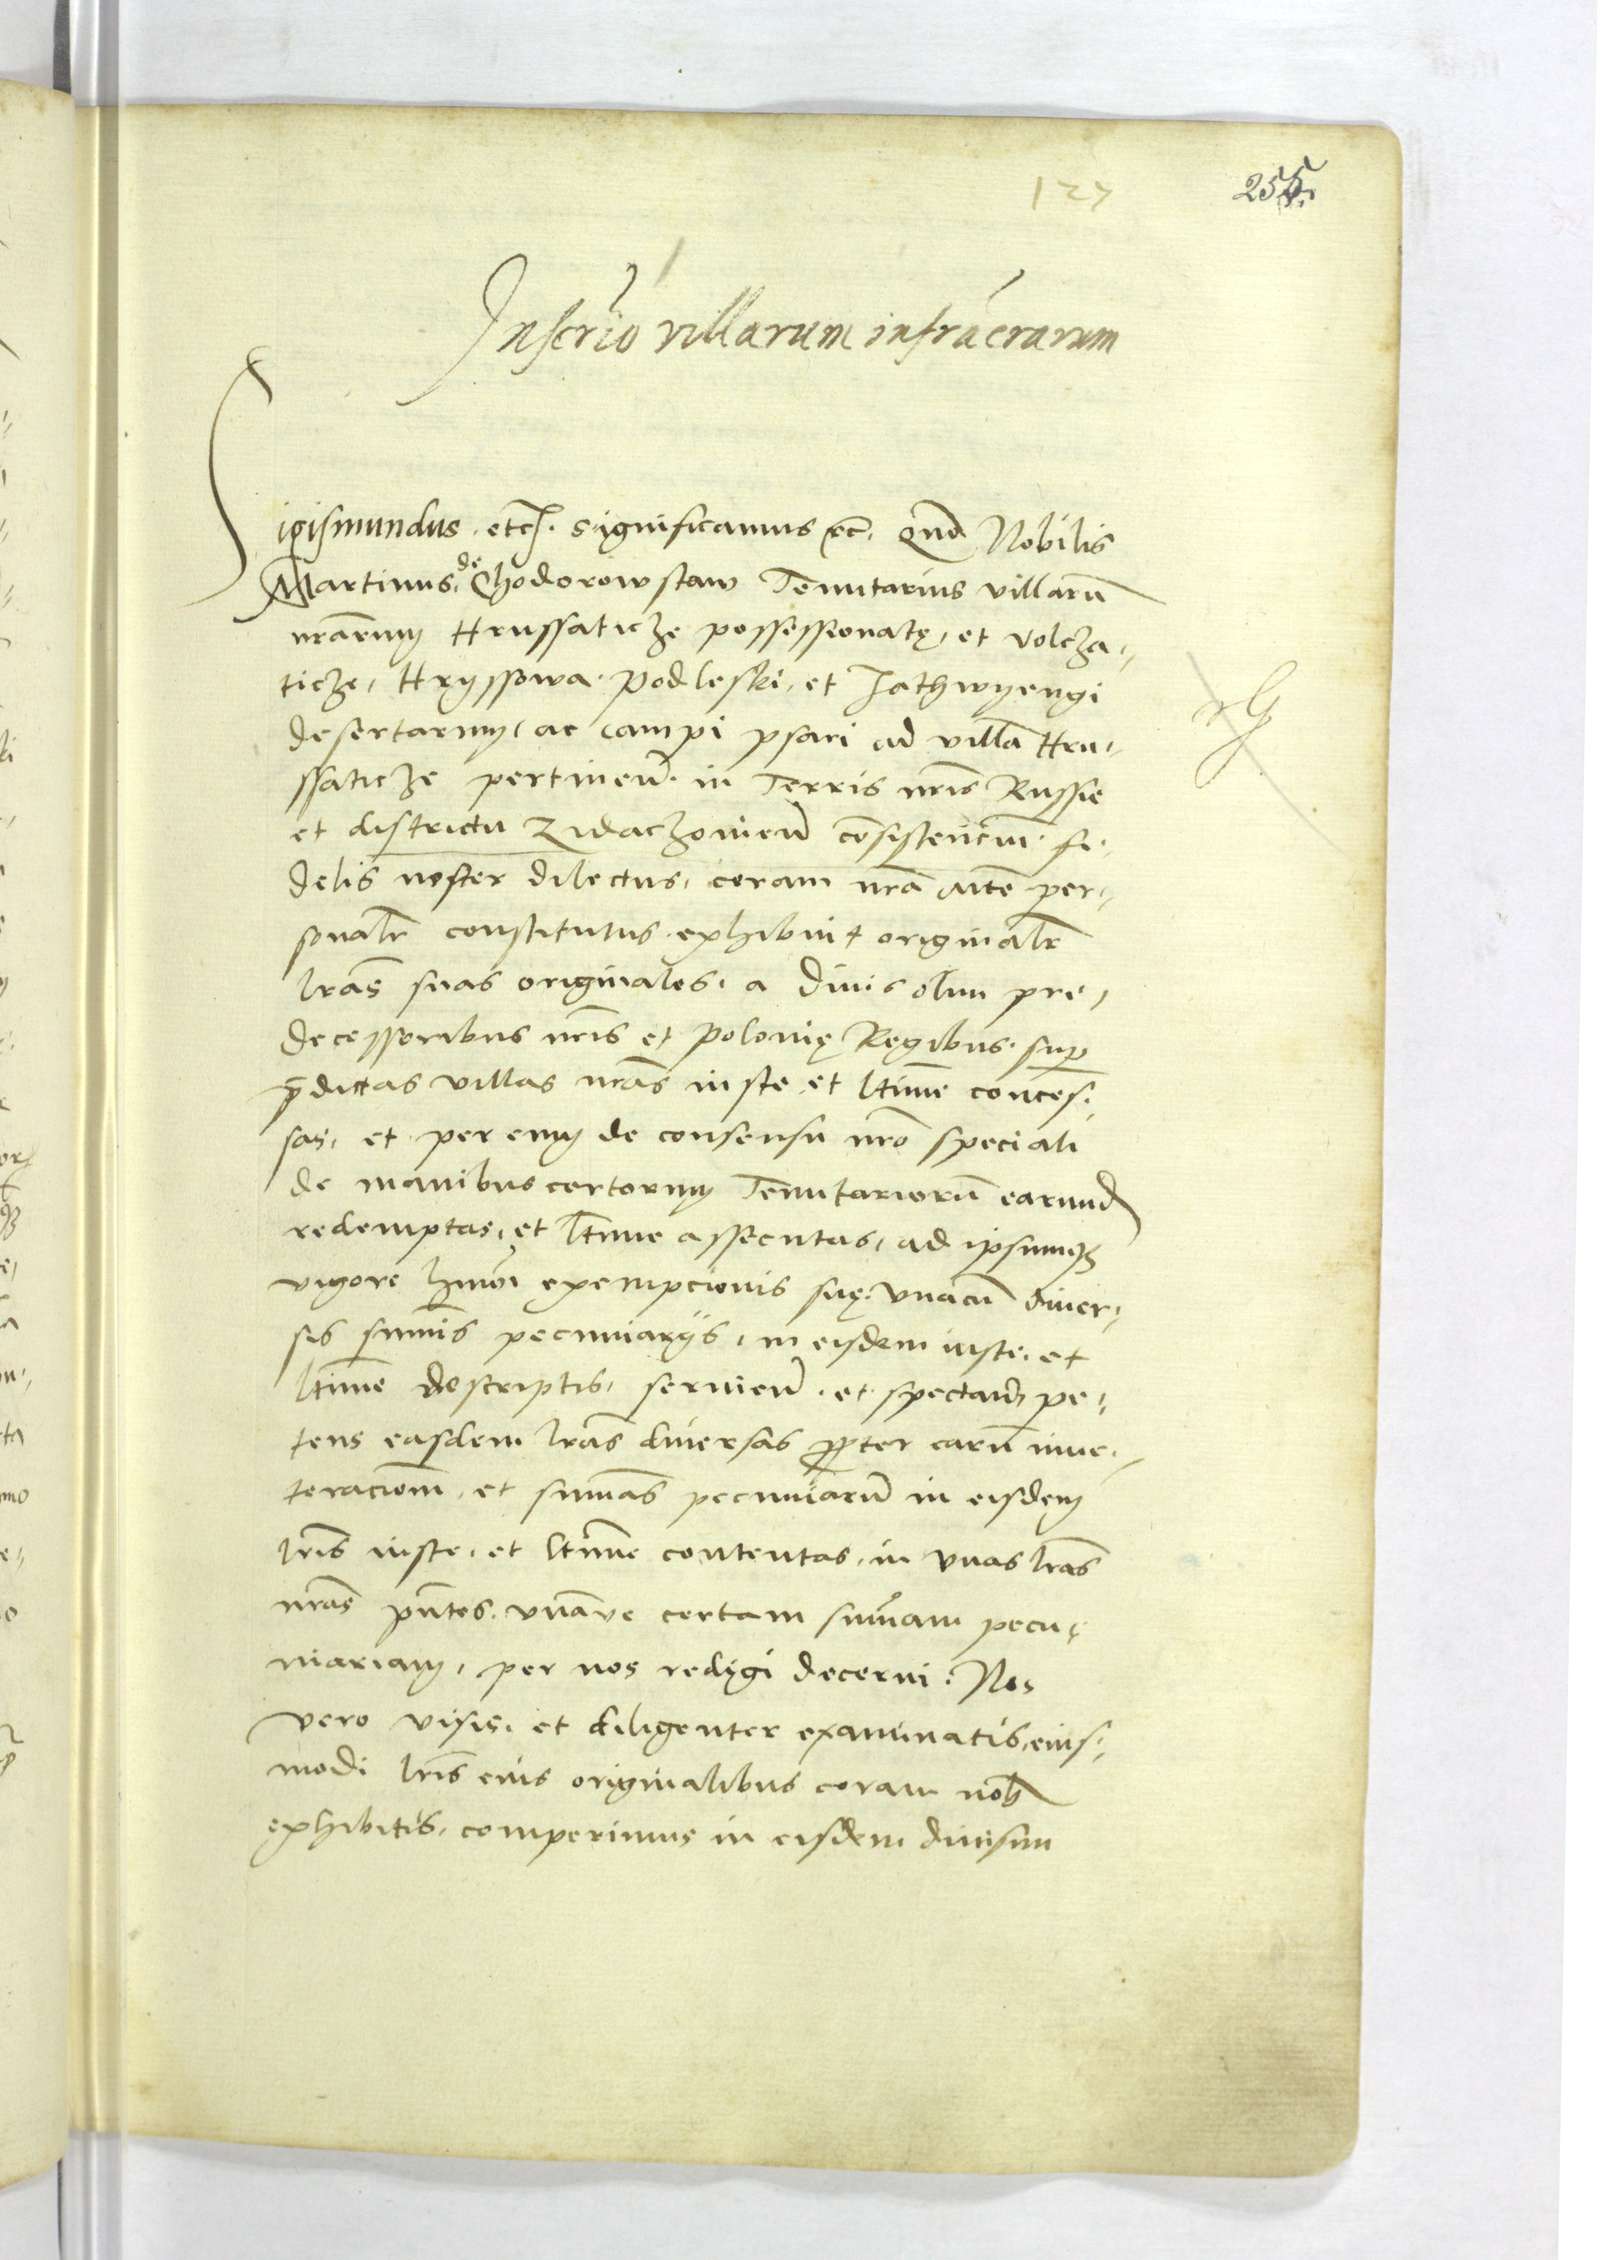 127
255.
Inscrio villarum infrascrarum
Sigismundus. etc. significamus etc. Quod Nobilis
Martinus de Chodorowstaw Tenutarius villarū
nrārum Hrussaticze possessionatę, et Volcza-
ticze, Hryssowa. Podleski, et Jathwyengi
desertarum, ac campi psari ad villā Hru-
ssaticze pertineñ. in Terris nrīs Russie
et districtu Zidaczovieñ consistencm̄. fi-
delis noster dilectus, coram nrā mte per-
sonalr̄ constitutus. exhibuit originalr̄
lrās suas originales. a Divis olim pre-
decessoribus nrīs et Polonię Regibus. sup
p̄dictas villas nrās iuste et ltime conces-
sas, et per eum de consensu nrō speciali
de manibus certorum Tenutariorū earund
redemptas, et ltime assecutas, ad ipsumqз
vigore hmōi exempcionis suę. vnacū diver-
sis summis pecuniarijs, in eisdem iuste. et
ltime descriptis, servieñ. et spectañ. pe-
tens easdem lrās diversas propter earū inve-
teracionm̄, et summas pecuniarū in eisdem
lrīs iuste. et ltime contentas, in vnas lrās
nrās pn̄tes. vnāve certam summam pecu-
niariam, per nos redigi decerni. Nos
vero visis. et diligenter examinatis, eius-
modi lrīs eius originalibus coram nob
exhibitis, comperimus in eisdem divisim